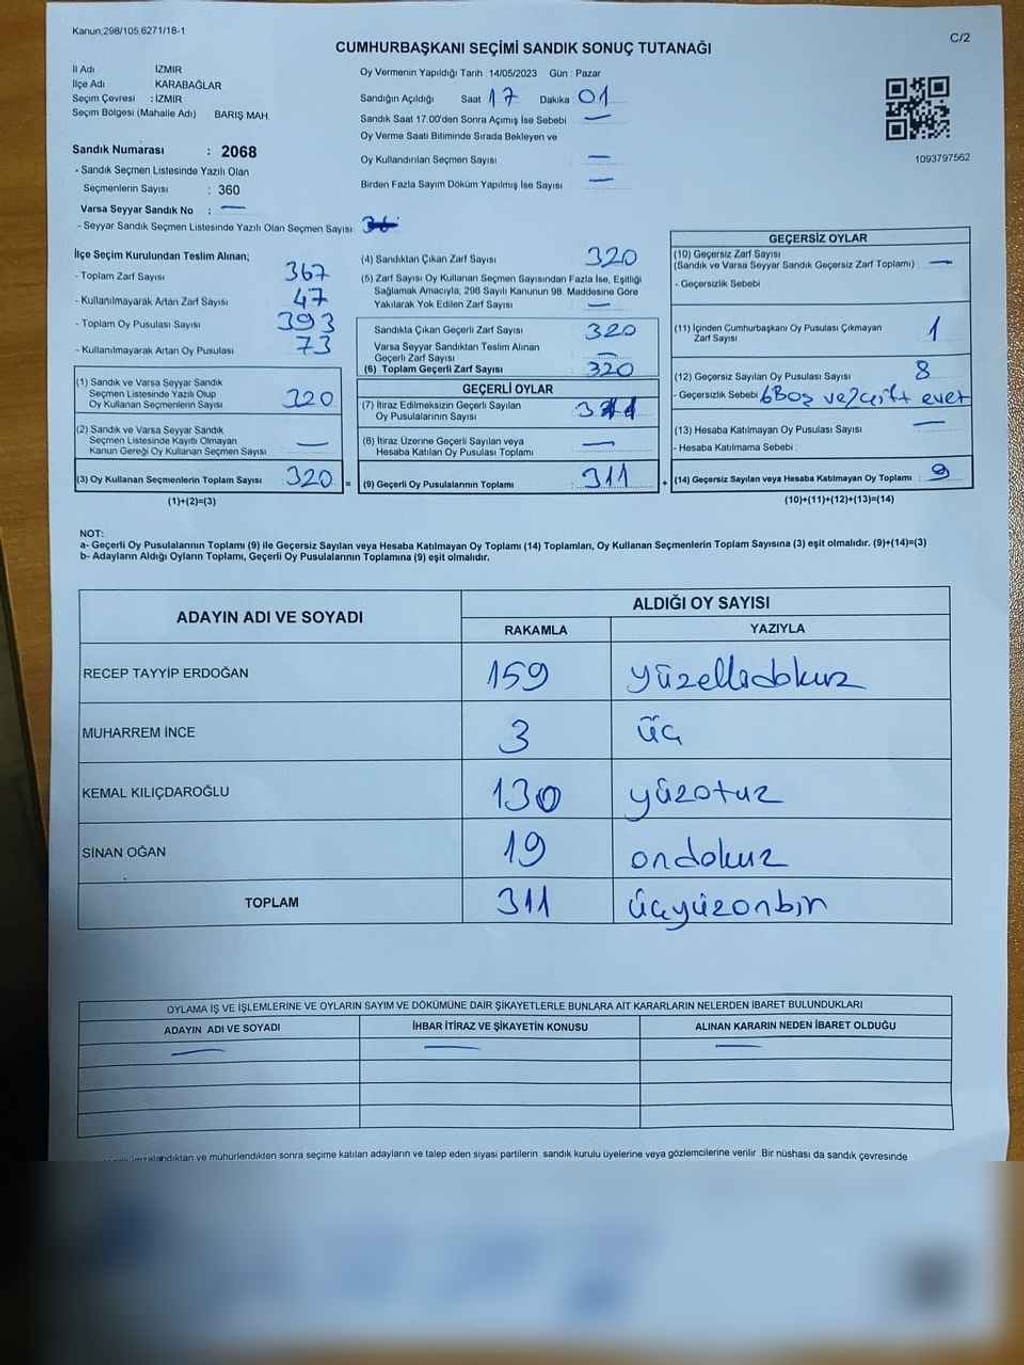 Kanun;298/105,6271/18-1
C/2
CUMHURBAŞKANI SEÇİMİ SANDIK SONUÇ TUTANAĞI
İl Adı İZMİR
İlçe Adı KARABAĞLAR
Seçim Çevresi : İZMİR
Seçim Bölgesi (Mahalle Adı) BARIŞ MAH.
Sandık Numarası : 2068
- Sandık Seçmen Listesinde Yazılı Olan
Seçmenlerin Sayısı : 360
Varsa Seyyar Sandık No : —
- Seyyar Sandık Seçmen Listesinde Yazılı Olan Seçmen Sayısı
Oy Vermenin Yapıldığı Tarih : 14/05/2023 Gün : Pazar
Sandığın Açıldığı Saat 17 Dakika 01
Sandık Saat 17.00'den Sonra Açımış İse Sebebi —
Oy Verme Saati Bitiminde Sırada Bekleyen ve
Oy Kullandırılan Seçmen Sayısı —
Birden Fazla Sayım Döküm Yapılmış İse Sayısı —
1093797562
İlçe Seçim Kurulundan Teslim Alınan;
- Toplam Zarf Sayısı 367
- Kullanılmayarak Artan Zarf Sayısı 47
- Toplam Oy Pusulası Sayısı 393
- Kullanılmayarak Artan Oy Pusulası 73
(1) Sandık ve Varsa Seyyar Sandık
Seçmen Listesinde Yazılı Olup
Oy Kullanan Seçmenlerin Sayısı 320
(2) Sandık ve Varsa Seyyar Sandık
Seçmen Listesinde Kayıtlı Olmayan
Kanun Gereği Oy Kullanan Seçmen Sayısı —
(3) Oy Kullanan Seçmenlerin Toplam Sayısı 320 =
(1)+(2)=(3)
(4) Sandıktan Çıkan Zarf Sayısı 320
(5) Zarf Sayısı Oy Kullanan Seçmen Sayısından Fazla İse, Eşitliği
Sağlamak Amacıyla; 298 Sayılı Kanunun 98. Maddesine Göre
Yakılarak Yok Edilen Zarf Sayısı —
Sandıkta Çıkan Geçerli Zarf Sayısı 320
Varsa Seyyar Sandıktan Teslim Alınan
Geçerli Zarf Sayısı —
(6) Toplam Geçerli Zarf Sayısı 320
GEÇERLİ OYLAR
(7) İtiraz Edilmeksizin Geçerli Sayılan
Oy Pusulalarının Sayısı 311
(8) İtiraz Üzerine Geçerli Sayılan veya
Hesaba Katılan Oy Pusulası Toplamı —
(9) Geçerli Oy Pusulalarının Toplamı 311 +
GEÇERSİZ OYLAR
(10) Geçersiz Zarf Sayısı
(Sandık ve Varsa Seyyar Sandık Geçersiz Zarf Toplamı) —
- Geçersizlik Sebebi
(11) İçinden Cumhurbaşkanı Oy Pusulası Çıkmayan
Zarf Sayısı 1
(12) Geçersiz Sayılan Oy Pusulası Sayısı 8
- Geçersizlik Sebebi 6 Boş ve 2 çift evet
(13) Hesaba Katılmayan Oy Pusulası Sayısı —
- Hesaba Katılmama Sebebi
(14) Geçersiz Sayılan veya Hesaba Katılmayan Oy Toplamı 9
(10)+(11)+(12)+(13)=(14)
NOT:
a- Geçerli Oy Pusulalarının Toplamı (9) ile Geçersiz Sayılan veya Hesaba Katılmayan Oy Toplamı (14) Toplamları, Oy Kullanan Seçmenlerin Toplam Sayısına (3) eşit olmalıdır. (9)+(14)=(3)
b- Adayların Aldığı Oyların Toplamı, Geçerli Oy Pusulalarının Toplamına (9) eşit olmalıdır.
ADAYIN ADI VE SOYADI ALDIĞI OY SAYISI
RAKAMLA YAZIYLA
RECEP TAYYİP ERDOĞAN 159 yüzellidokuz
MUHARREM İNCE 3 üç
KEMAL KILIÇDAROĞLU 130 yüzotuz
SİNAN OĞAN 19 ondokuz
TOPLAM 311 üçyüzonbir
OYLAMA İŞ VE İŞLEMLERİNE VE OYLARIN SAYIM VE DÖKÜMÜNE DAİR ŞİKAYETLERLE BUNLARA AİT KARARLARIN NELERDEN İBARET BULUNDUKLARI
ADAYIN ADI VE SOYADI İHBAR İTİRAZ VE ŞİKAYETİN KONUSU ALINAN KARARIN NEDEN İBARET OLDUĞU
— — —
ve mühürlendikten sonra seçime katılan adayların ve talep eden siyasi partilerin sandık kurulu üyelerine veya gözlemcilerine verilir. Bir nüshası da sandık çevresinde